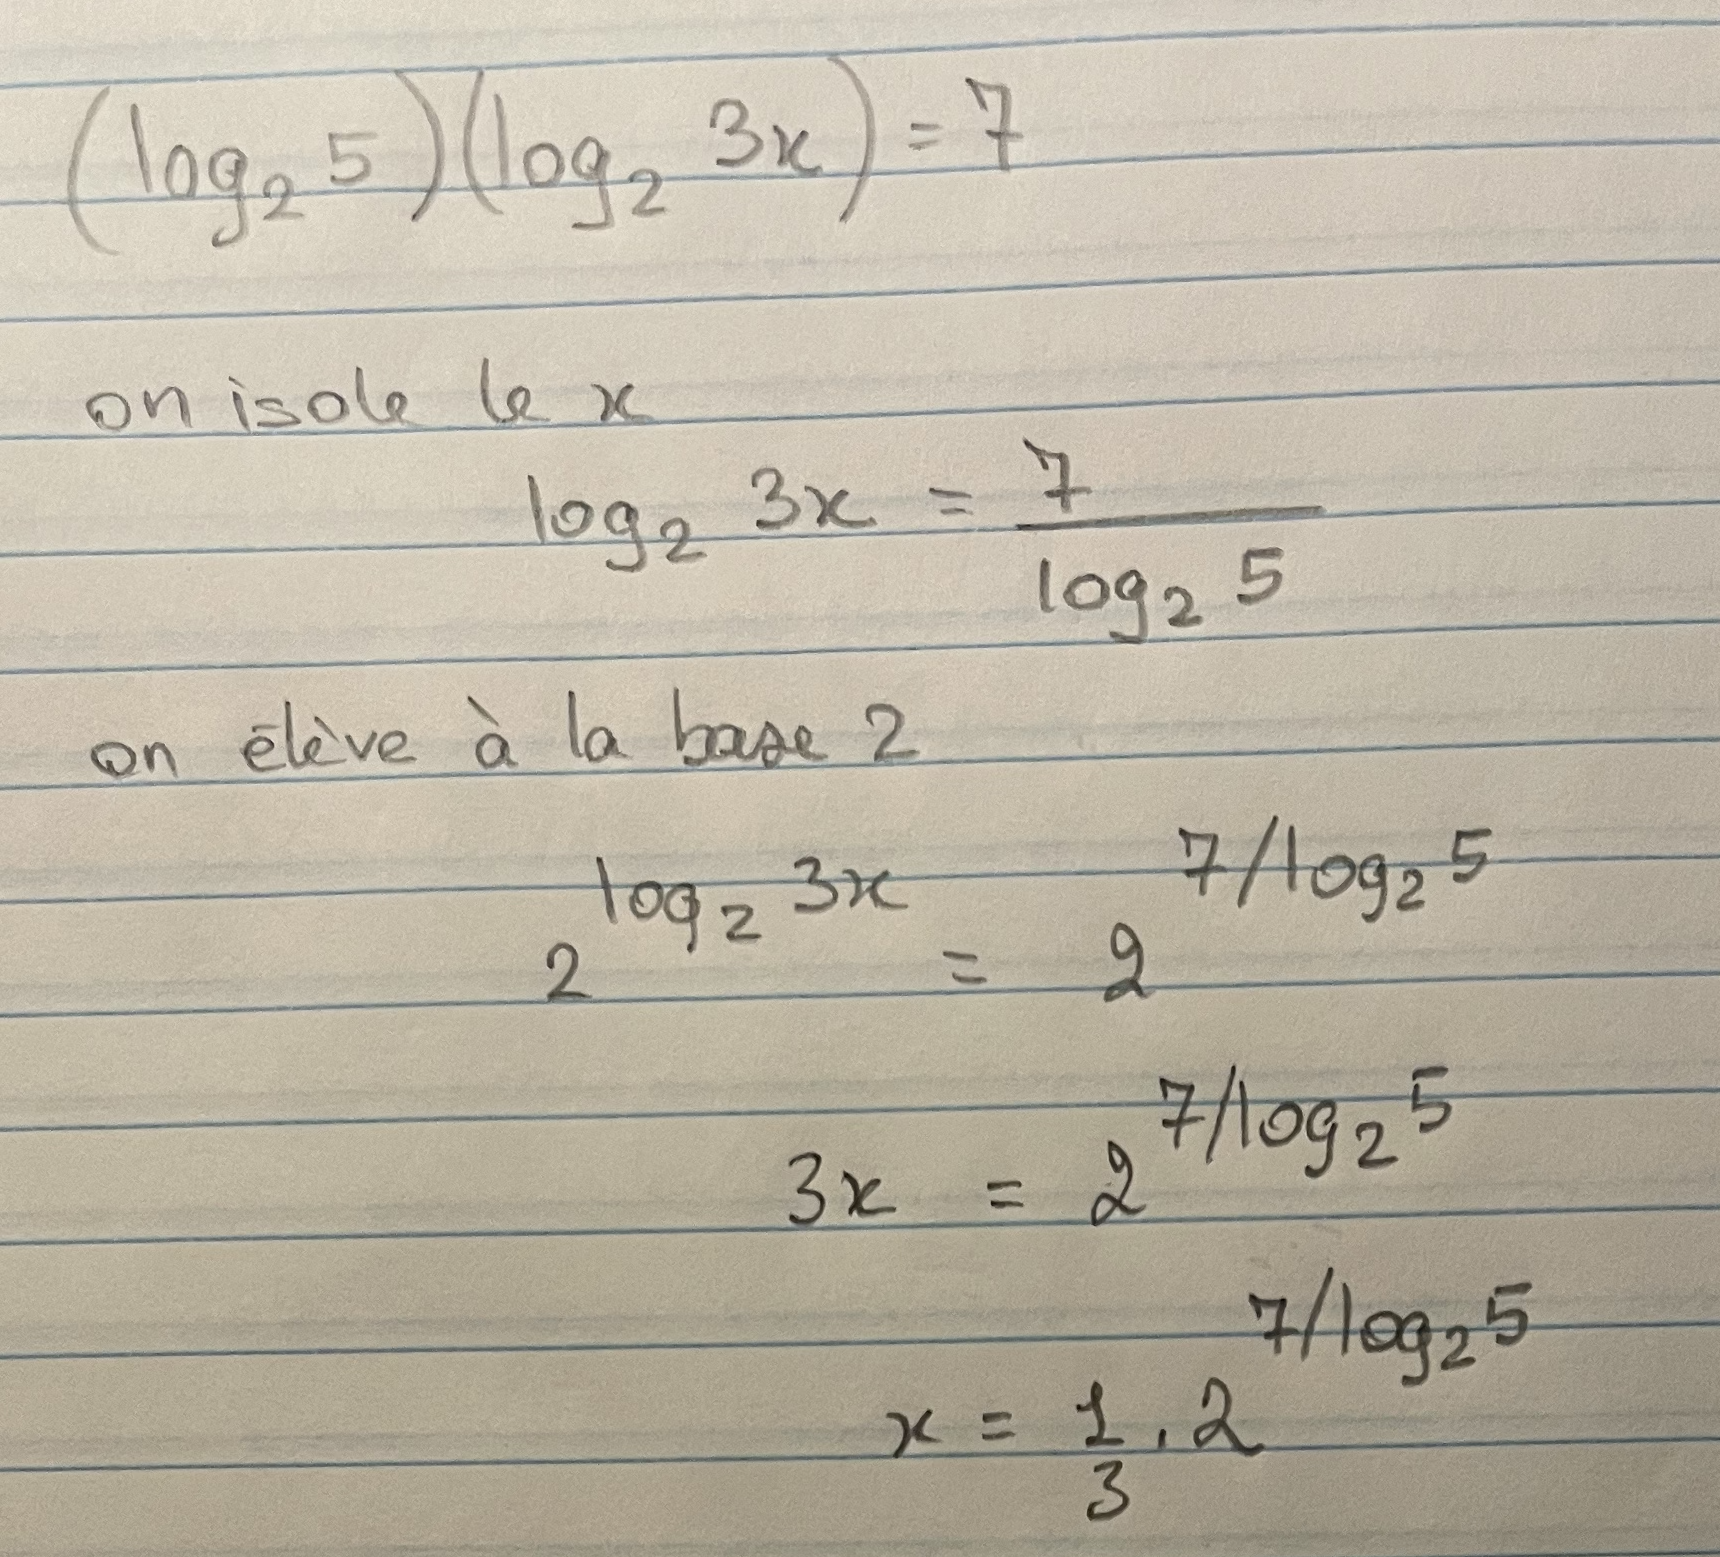 (log₂ 5)(log₂ 3x) = 7
on isole le x
log₂ 3x = 7 / log₂ 5
on élève à la base 2
2^(log₂ 3x) = 2^(7/log₂ 5)
3x = 2^(7/log₂ 5)
x = 1/3 . 2^(7/log₂ 5)